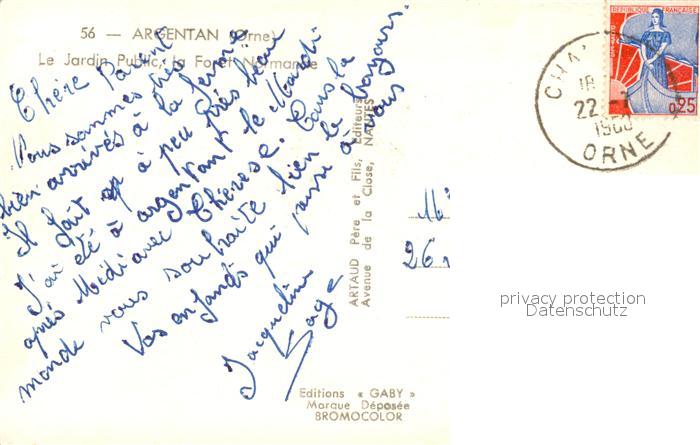 56 — ARGENTAN (Orne)
Le Jardin Public, la Forêt Normande
Chère Parent
Nous sommes très
bien arrivés à la ferme
Il fait un peu très beau
J'ai été à argentant le Mardi
après Midi avec Thérèse. Tous la
monde vous souhaite bien le bonjours.
Vos enfants qui pense à vous
Jacqueline
ARTAUD Père et Fils, Editeurs
Avenue de la Close, NANTES
Editions « GABY »
Marque Déposée
BROMOCOLOR
REPUBLIQUE FRANÇAISE
0,25
22-7
ORNE
M
26
privacy protection
Datenschutz